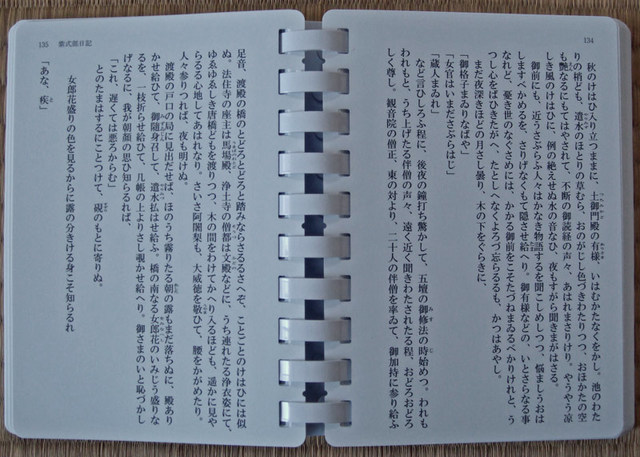 134
秋のけはひ入り立つままに、土御門殿の有様、いはむかたなくをかし。池のわた
りの梢ども、遣水のほとりの草むら、おのがじし色づきわたりつつ、おほかたの空
も艶なるにもてはやされて、不断の御読経の声々、あはれまさりけり。やうやう涼
しき風のけはひに、例の絶えせぬ水の音なひ、夜もすがら聞きまがはさる。
御前にも、近うさぶらふ人々はかなき物語するを聞こしめしつつ、悩ましうおは
しますべかめるを、さりげなくもて隠させ給へり。御有様などの、いとさらなる事
なれど、憂き世のなぐさめには、かかる御前をこそたづねまゐるべかりけれと、う
つし心をばひきたがへ、たとしへなくよろづ忘らるるも、かつはあやし。
まだ夜深きほどの月さし曇り、木の下をぐらきに、
「御格子まゐりなばや」
「女官はいまださぶらはじ」
「蔵人まゐれ」
など言ひしろふ程に、後夜の鐘打ち驚かして、五壇の御修法の時始めつ。われも
われもと、うち上げたる伴僧の声々、遠く近く聞きわたされたる程、おどろおどろ
しく尊し。観音院の僧正、東の対より、二十人の伴僧を率ゐて、御加持に参り給ふ
135 紫式部日記
足音、渡殿の橋のとどろとどろと踏みならさるるさへぞ、ことごとのけはひには似
ぬ。法住寺の座主は馬場殿、浄土寺の僧都は文殿などに、うち連れたる浄衣姿にて、
ゆゑゆゑしき唐橋どもを渡りつつ、木の間をわけてかへり入るほども、遥かに見や
らるる心地してあはれなり。さいさ阿闍梨も、大威徳を敬ひて、腰をかがめたり。
人々参りつれば、夜も明けぬ。
渡殿の戸口の局に見出だせば、ほのうち霧りたる朝の露もまだ落ちぬに、殿あり
かせ給ひて、御随身召して、遣水払はせ給ふ。橋の南なる女郎花のいみじう盛りな
るを、一枝折らせ給ひて、几帳の上よりさし覗かせ給へり。御さまのいと恥づかし
げなるに、我が朝顔の思ひ知らるれば、
「これ、遅くては悪ろからむ」
とのたまはするにことつけて、硯のもとに寄りぬ。
女郎花盛りの色を見るからに露の分きける身こそ知らるれ
「あな、疾」